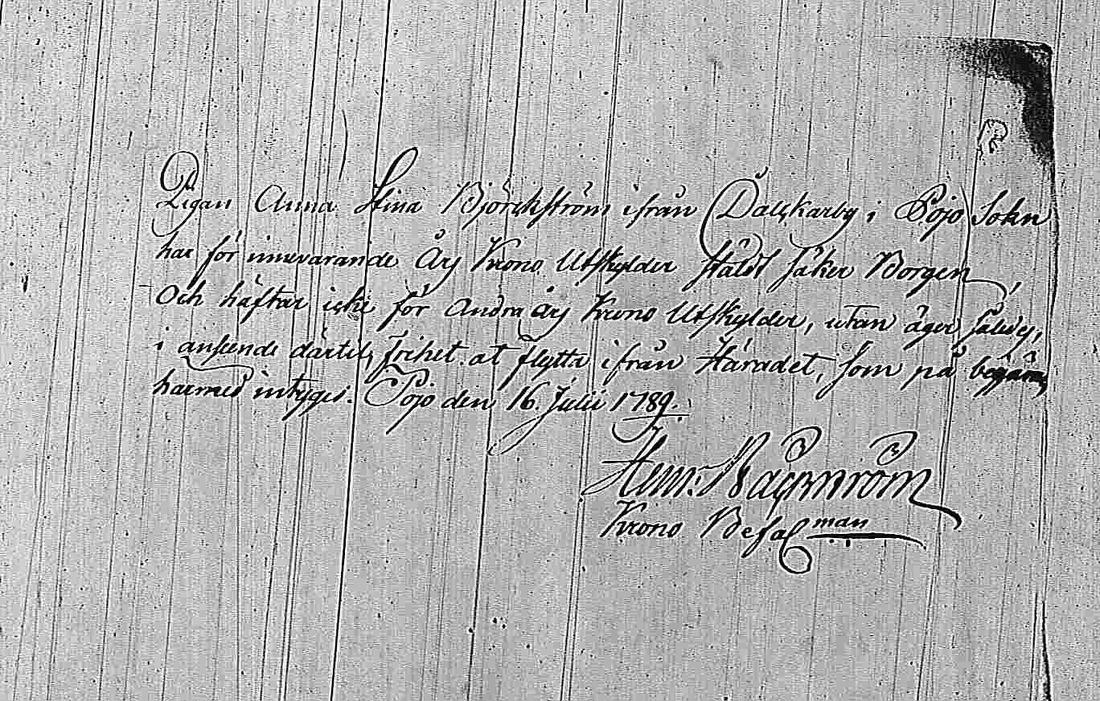 Pigan Anna Stina Björckström ifrån Dalskarby i Pojo Sokn
har för innevarande Års Krono Utskylder stäldt säker Borgen,
Och häftar icke för Andra Års Krono Utskylder, utan äger således,
i anseende därtil, frihet at flytta ifrån Häradet, som på begäran
härmed intygas. Pojo den 16. Julii 1789.
Henr:
Krono Befal man